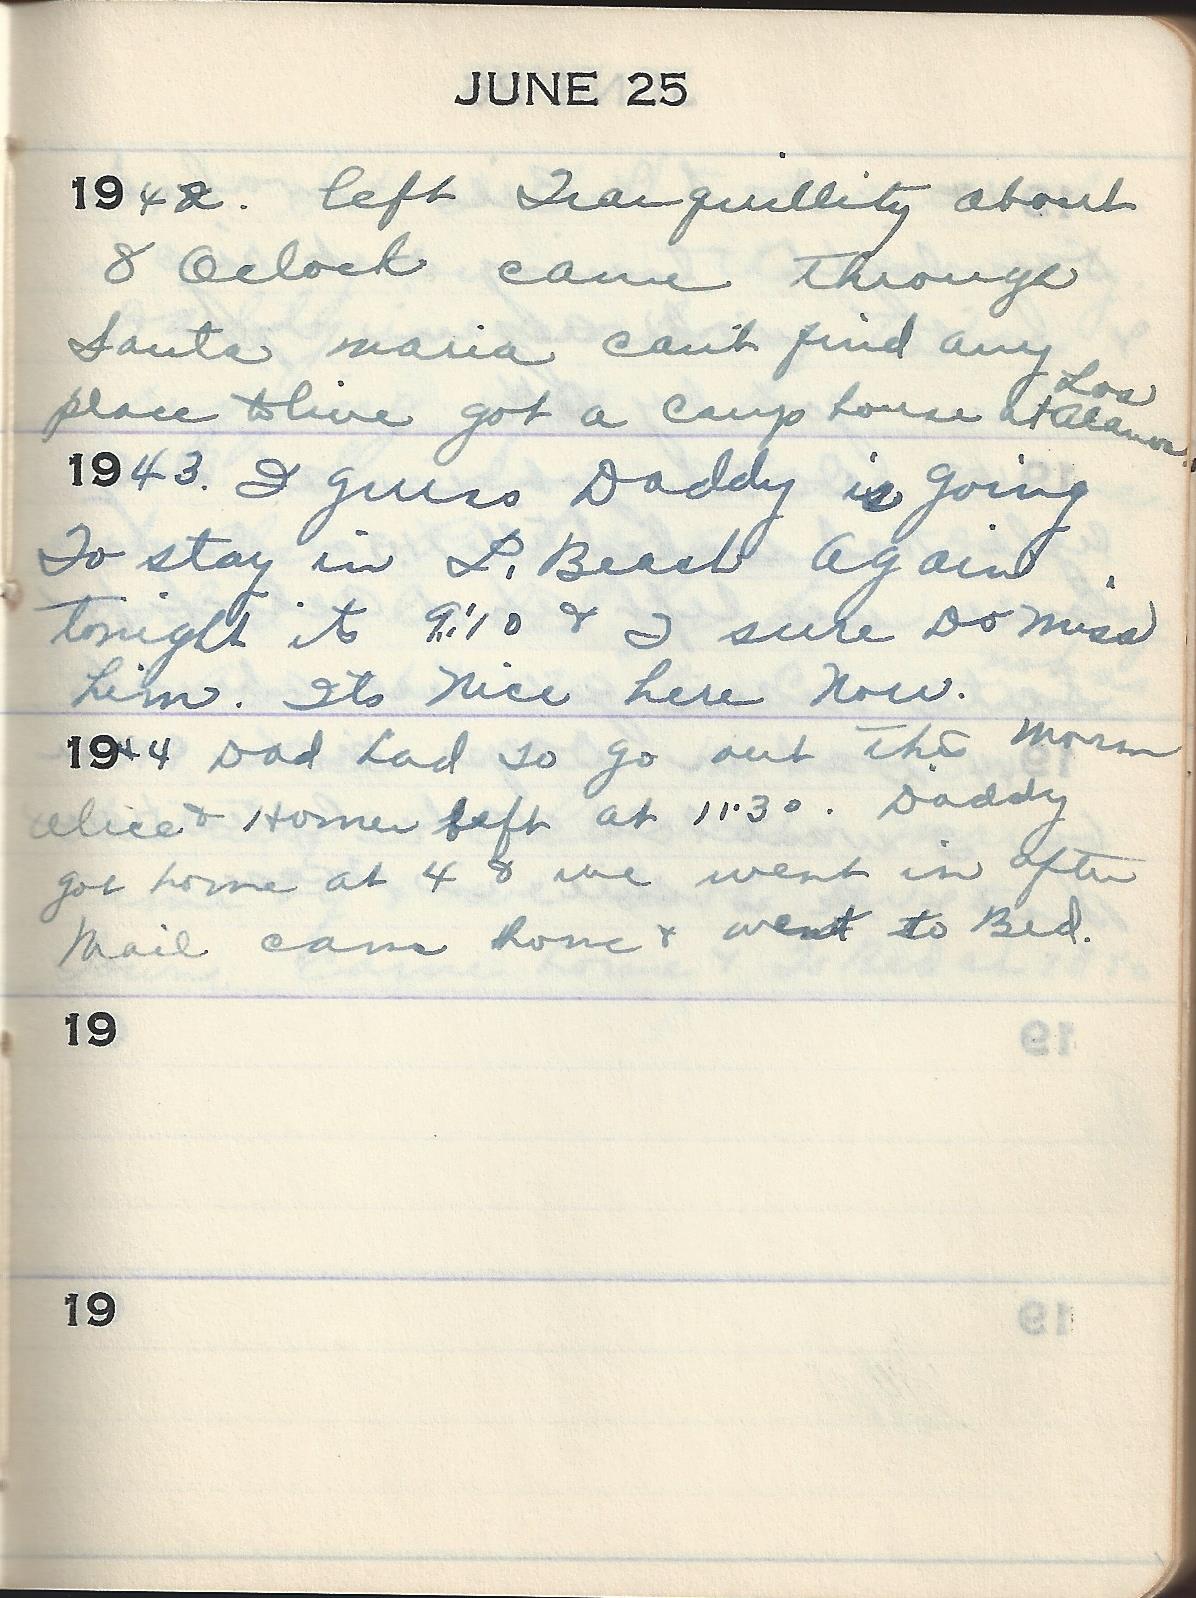 JUNE 25
1942. left Tranquillity about
8 Oclock came through
Santa maria can't find any
place to live got a camp house at Los Alamos.
1943. I guess Daddy is going
To stay in L. Beach Again
tonight its 9:10 & I sure Do miss
him. Its Nice here Now.
1944 Dad had to go out this morn
Alice & Homer left at 11:30. Daddy
got home at 4 & we went in after
Mail came home & went to Bed.
19
19